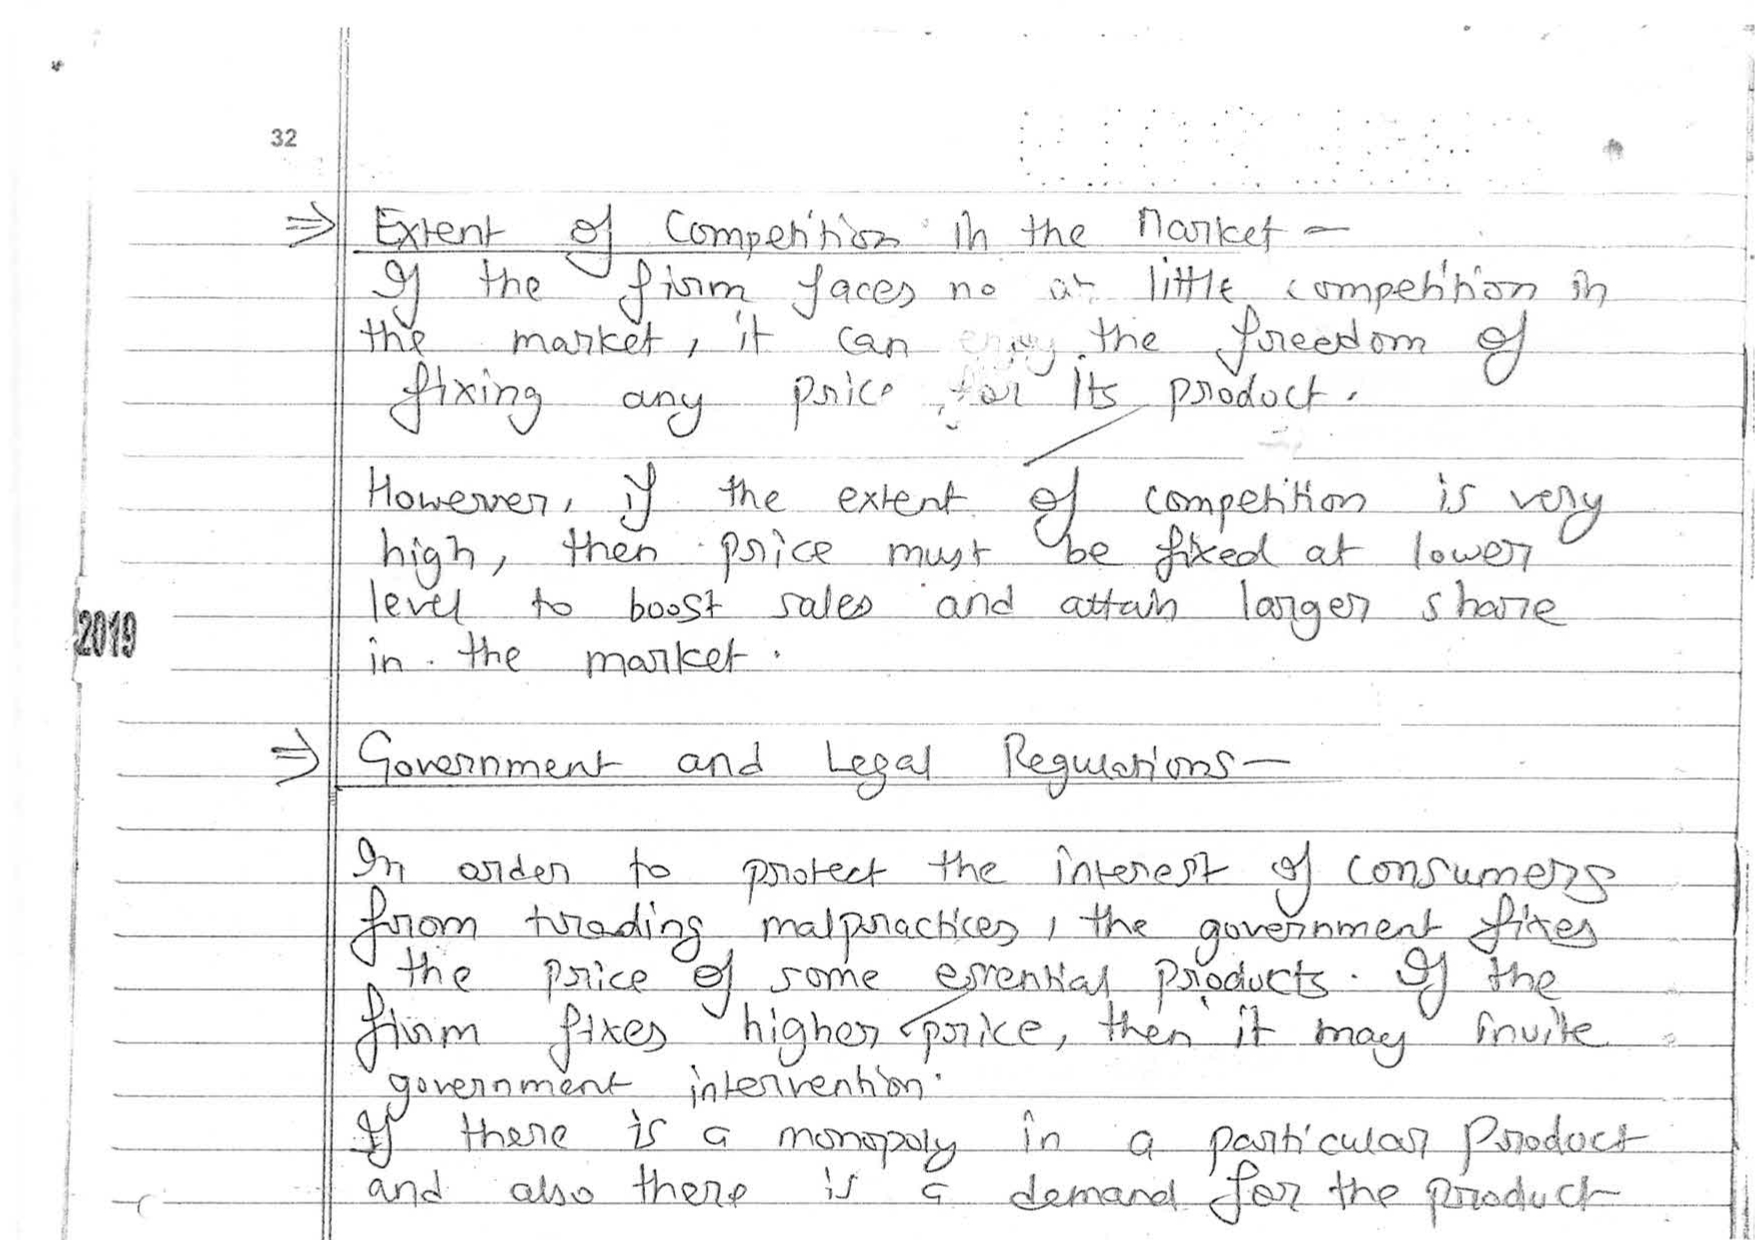 32
⇒ Extent of Competition in the Market –
If the firm faces no or little competition in
the market, it can enjoy the freedom of
fixing any price for its product.
However, if the extent of competition is very
high, then price must be fixed at lower
level to boost sales and attain larger share
2019
in the market.
⇒ Government and Legal Regulations –
In order to protect the interest of consumers
from trading malpractices, the government fixes
the price of some essential products. If the
firm fixes higher price, then it may invite
government intervention.
If there is a monopoly in a particular Product
and also there is a demand for the product